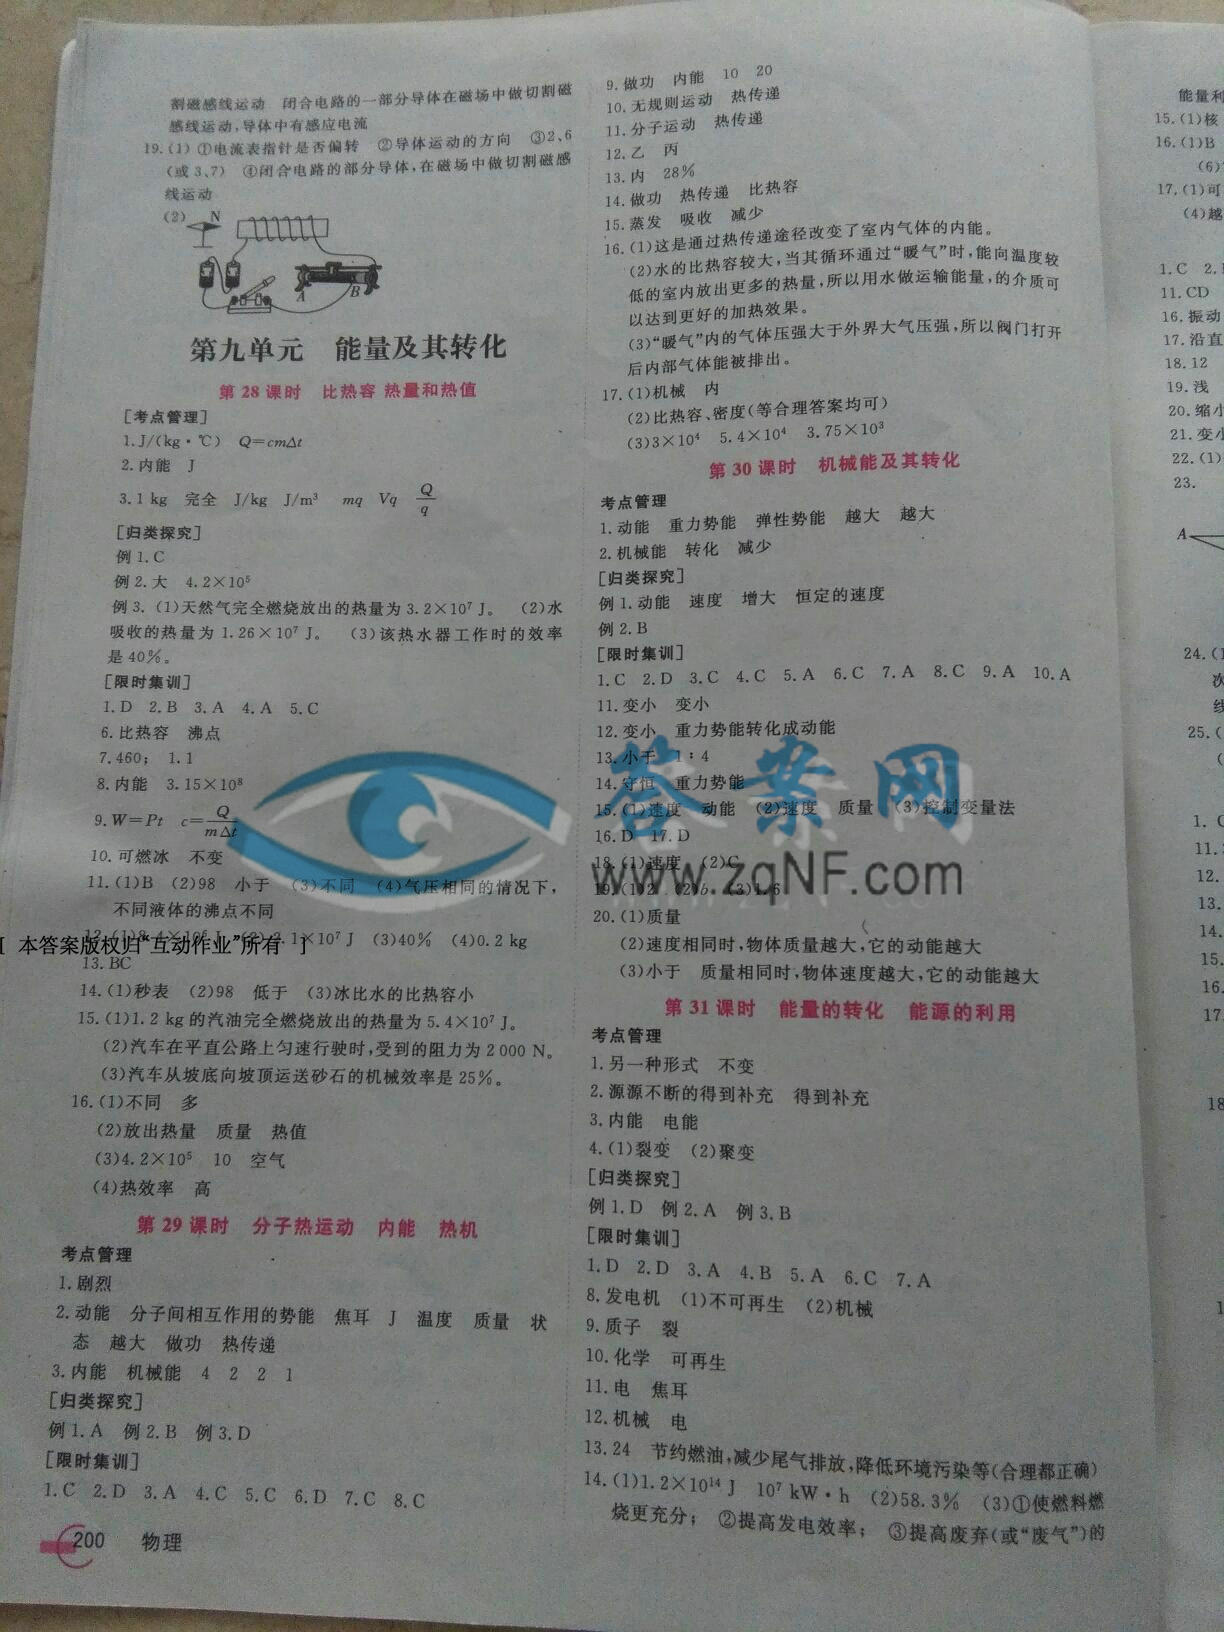 割磁感线运动 闭合电路的一部分导体在磁场中做切割磁
感线运动,导体中有感应电流
19.(1)①电流表指针是否偏转 ②导体运动的方向 ③2、6
(或3、7) ④闭合电路的部分导体,在磁场中做切割磁感
线运动
(2)
N
A B
第九单元 能量及其转化
第28课时 比热容 热量和热值
[考点管理]
1.J/(kg·℃) Q=cmΔt
2.内能 J
3.1 kg 完全 J/kg J/m³ mq Vq Q/q
[归类探究]
例1.C
例2.大 4.2×10⁵
例3.(1)天然气完全燃烧放出的热量为3.2×10⁷ J。 (2)水
吸收的热量为1.26×10⁷ J。 (3)该热水器工作时的效率
是40%。
[限时集训]
1.D 2.B 3.A 4.A 5.C
6.比热容 沸点
7.460; 1.1
8.内能 3.15×10⁸
9.W=Pt c=Q/mΔt
10.可燃冰 不变
11.(1)B (2)98 小于 (3)不同 (4)气压相同的情况下,
不同液体的沸点不同
(3)40% (4)0.2 kg
[ 本答案版权归“互动作业”所有 ]
13.BC
14.(1)秒表 (2)98 低于 (3)冰比水的比热容小
15.(1)1.2 kg的汽油完全燃烧放出的热量为5.4×10⁷ J。
(2)汽车在平直公路上匀速行驶时,受到的阻力为2 000 N。
(3)汽车从坡底向坡顶运送砂石的机械效率是25%。
16.(1)不同 多
(2)放出热量 质量 热值
(3)4.2×10⁵ 10 空气
(4)热效率 高
第29课时 分子热运动 内能 热机
考点管理
1.剧烈
2.动能 分子间相互作用的势能 焦耳 J 温度 质量 状
态 越大 做功 热传递
3.内能 机械能 4 2 2 1
[归类探究]
例1.A 例2.B 例3.D
[限时集训]
1.C 2.D 3.A 4.C 5.C 6.D 7.C 8.C
200 物理
9.做功 内能 10 20
10.无规则运动 热传递
11.分子运动 热传递
12.乙 丙
13.内 28%
14.做功 热传递 比热容
15.蒸发 吸收 减少
16.(1)这是通过热传递途径改变了室内气体的内能。
(2)水的比热容较大,当其循环通过“暖气”时,能向温度较
低的室内放出更多的热量,所以用水做运输能量,的介质可
以达到更好的加热效果。
(3)“暖气”内的气体压强大于外界大气压强,所以阀门打开
后内部气体能被排出。
17.(1)机械 内
(2)比热容、密度(等合理答案均可)
(3)3×10⁴ 5.4×10⁴ 3.75×10³
第30课时 机械能及其转化
考点管理
1.动能 重力势能 弹性势能 越大 越大
2.机械能 转化 减少
[归类探究]
例1.动能 速度 增大 恒定的速度
例2.B
[限时集训]
1.C 2.D 3.C 4.C 5.A 6.C 7.A 8.C 9.A 10.A
11.变小 变小
12.变小 重力势能转化成动能
13.小于 1∶4
14.守恒 重力势能
15.(1)速度 动能 (2)速度 质量 (3)控制变量法
16.D 17.D
18.(1)速度 (2)C
19.(1)2 (2)b (3)1.6
20.(1)质量
(2)速度相同时,物体质量越大,它的动能越大
(3)小于 质量相同时,物体速度越大,它的动能越大
答案网
www.zqNF.com
第31课时 能量的转化 能源的利用
考点管理
1.另一种形式 不变
2.源源不断的得到补充 得到补充
3.内能 电能
4.(1)裂变 (2)聚变
[归类探究]
例1.D 例2.A 例3.B
[限时集训]
1.D 2.D 3.A 4.B 5.A 6.C 7.A
8.发电机 (1)不可再生 (2)机械
9.质子 裂
10.化学 可再生
11.电 焦耳
12.机械 电
13.24 节约燃油,减少尾气排放,降低环境污染等(合理都正确)
14.(1)1.2×10¹⁴ J 10⁷ kW·h (2)58.3% (3)①使燃料燃
烧更充分; ②提高发电效率; ③提高废弃(或“废气”)的
能量利
15.(1)核
16.(1)B
17.(1)可
(4)越
1.C 2.
11.CD
16.振动
17.沿直
18.12
19.浅
20.缩小
21.变小
22.(1)
23.
A
24.(1
次
线
25.(
1. C
11.
12.
13.
14.
15.
16.
17.
18